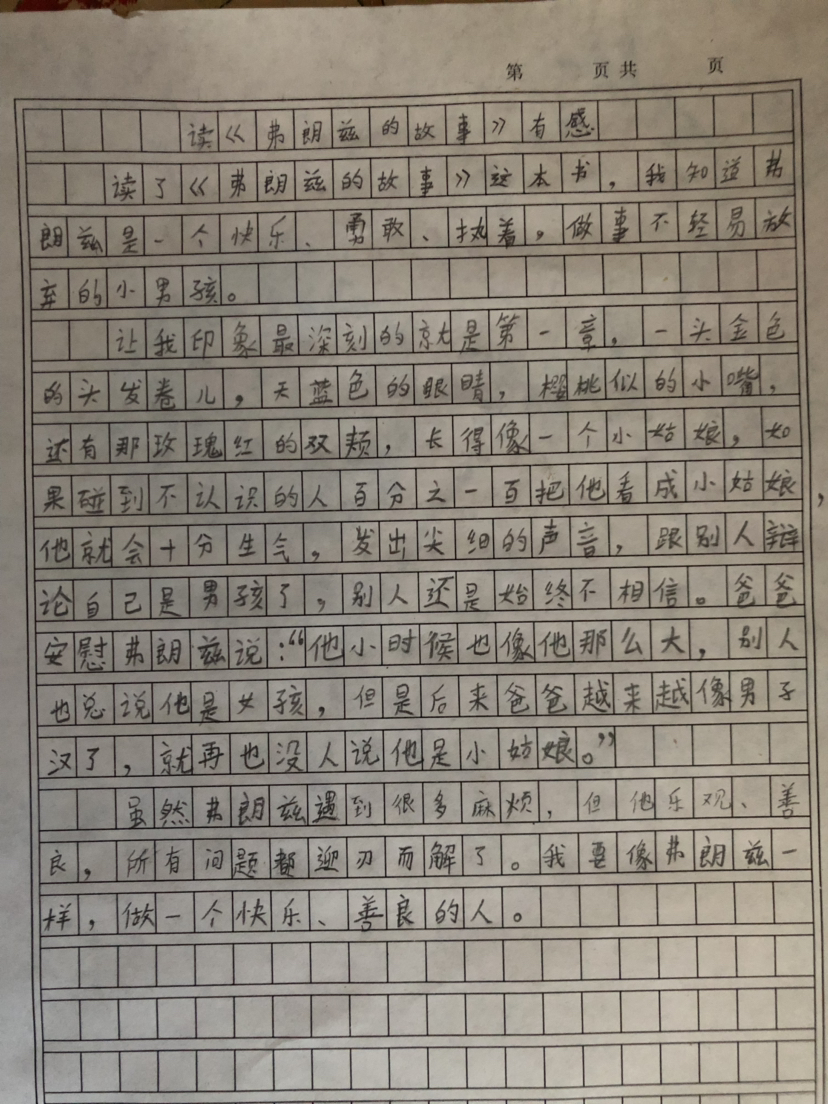 第 页共 页
读《弗朗兹的故事》有感
读了《弗朗兹的故事》这本书，我知道弗
朗兹是一个快乐、勇敢、执着，做事不轻易放
弃的小男孩。
让我印象最深刻的就是第一章，一头金色
的头发卷儿，天蓝色的眼睛，樱桃似的小嘴，
还有那玫瑰红的双颊，长得像一个小姑娘，如
果碰到不认识的人百分之一百把他看成小姑娘，
他就会十分生气，发出尖细的声音，跟别人辩
论自己是男孩了，别人还是始终不相信。爸爸
安慰弗朗兹说：“他小时候也像他那么大，别人
也总说他是女孩，但是后来爸爸越来越像男子
汉了，就再也没人说他是小姑娘。”
虽然弗朗兹遇到很多麻烦，但他乐观、善
良，所有问题都迎刃而解了。我要像弗朗兹一
样，做一个快乐、善良的人。